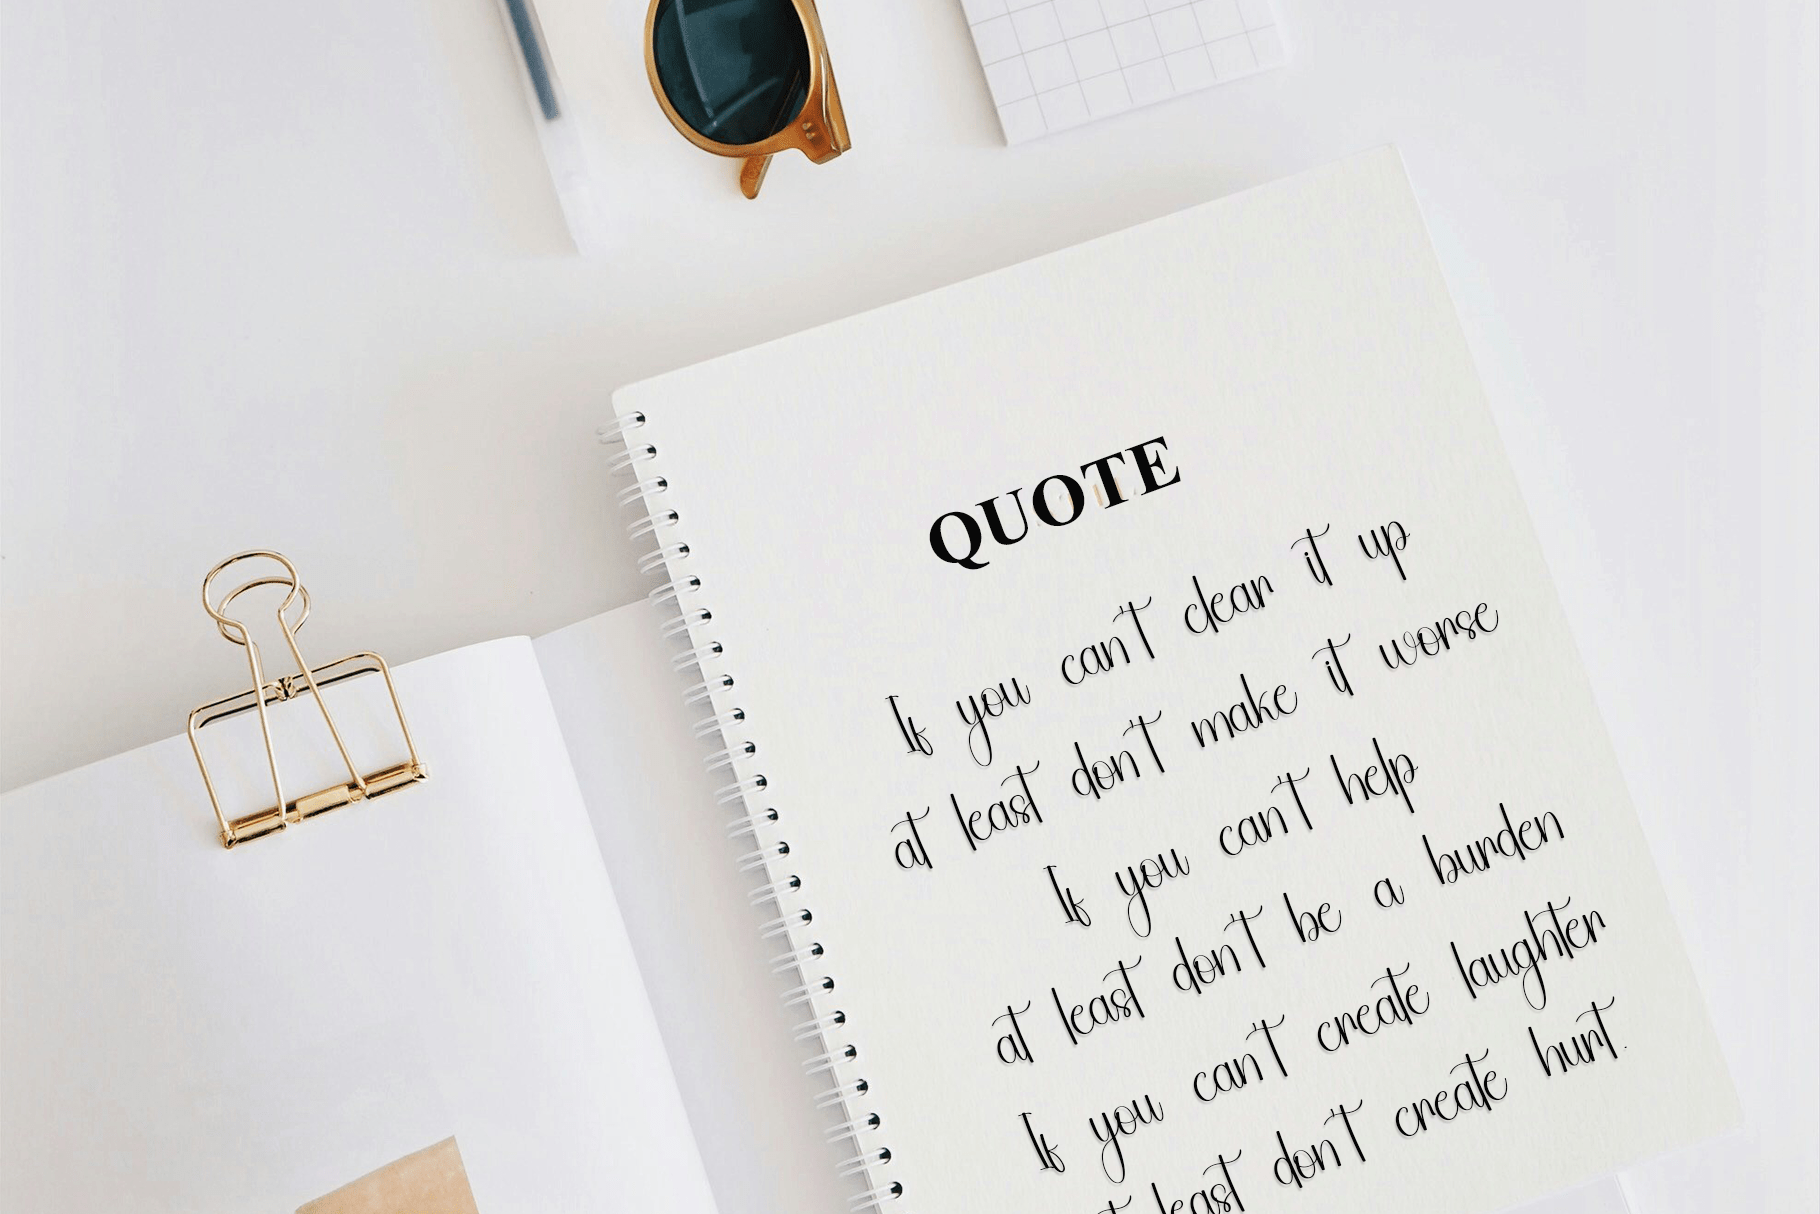 QUOTE
If you can't clear it up
at least don't make it worse
If you can't help
at least don't be a burden
If you can't create laughter
least don't create hurt.